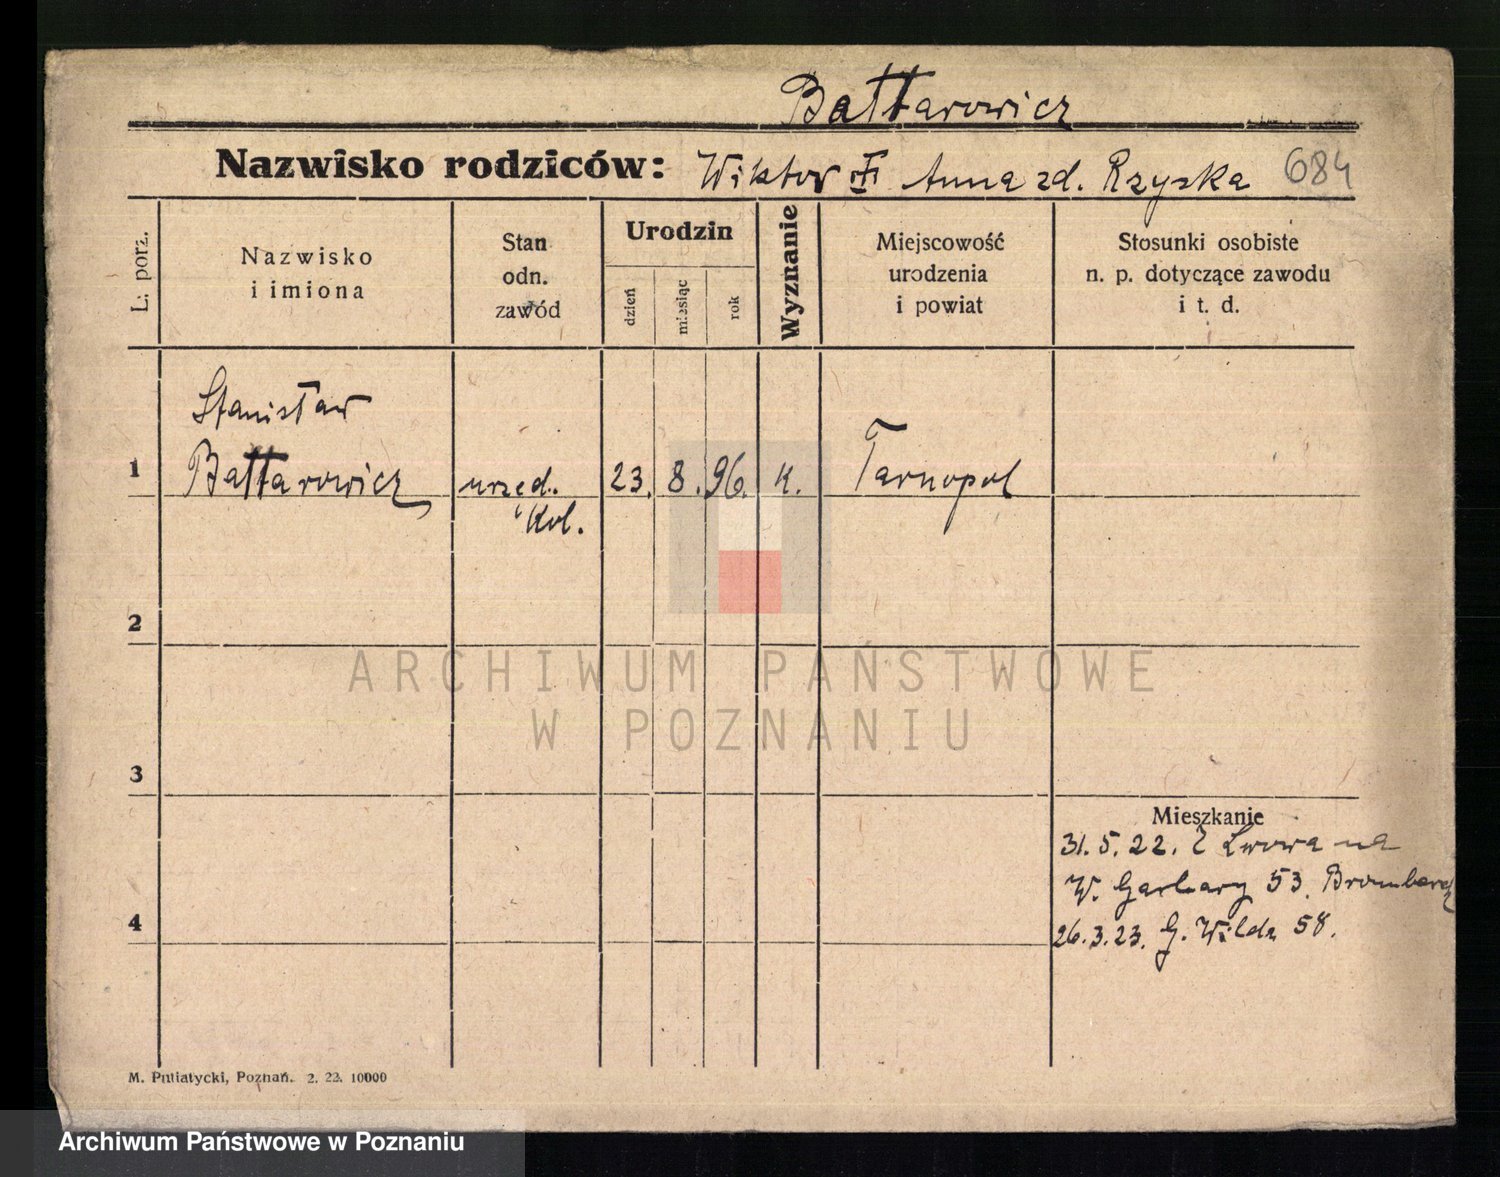 Bałłarowicz
Nazwisko rodziców: Wiktor Anna zd. Rzyska 684
L. porz.
Nazwisko
i imiona
Stan
odn.
zawód
Urodzin
dzień
miesiąc
rok
Wyznanie
Miejscowość
urodzenia
i powiat
Stosunki osobiste
n. p. dotyczące zawodu
i t. d.
Stanisław
1 Bałłarowicz urzęd. 23. 8. 96. k. Tarnopol
Kol.
2
3
Mieszkanie
31. 5. 22. z Lwowa na
W. Garbary 53.
4
26. 3. 23. G. Wilda 58.
M. Putiatycki, Poznań. 2. 22. 10000
ARCHIWUM PAŃSTWOWE
W POZNANIU
Archiwum Państwowe w Poznaniu